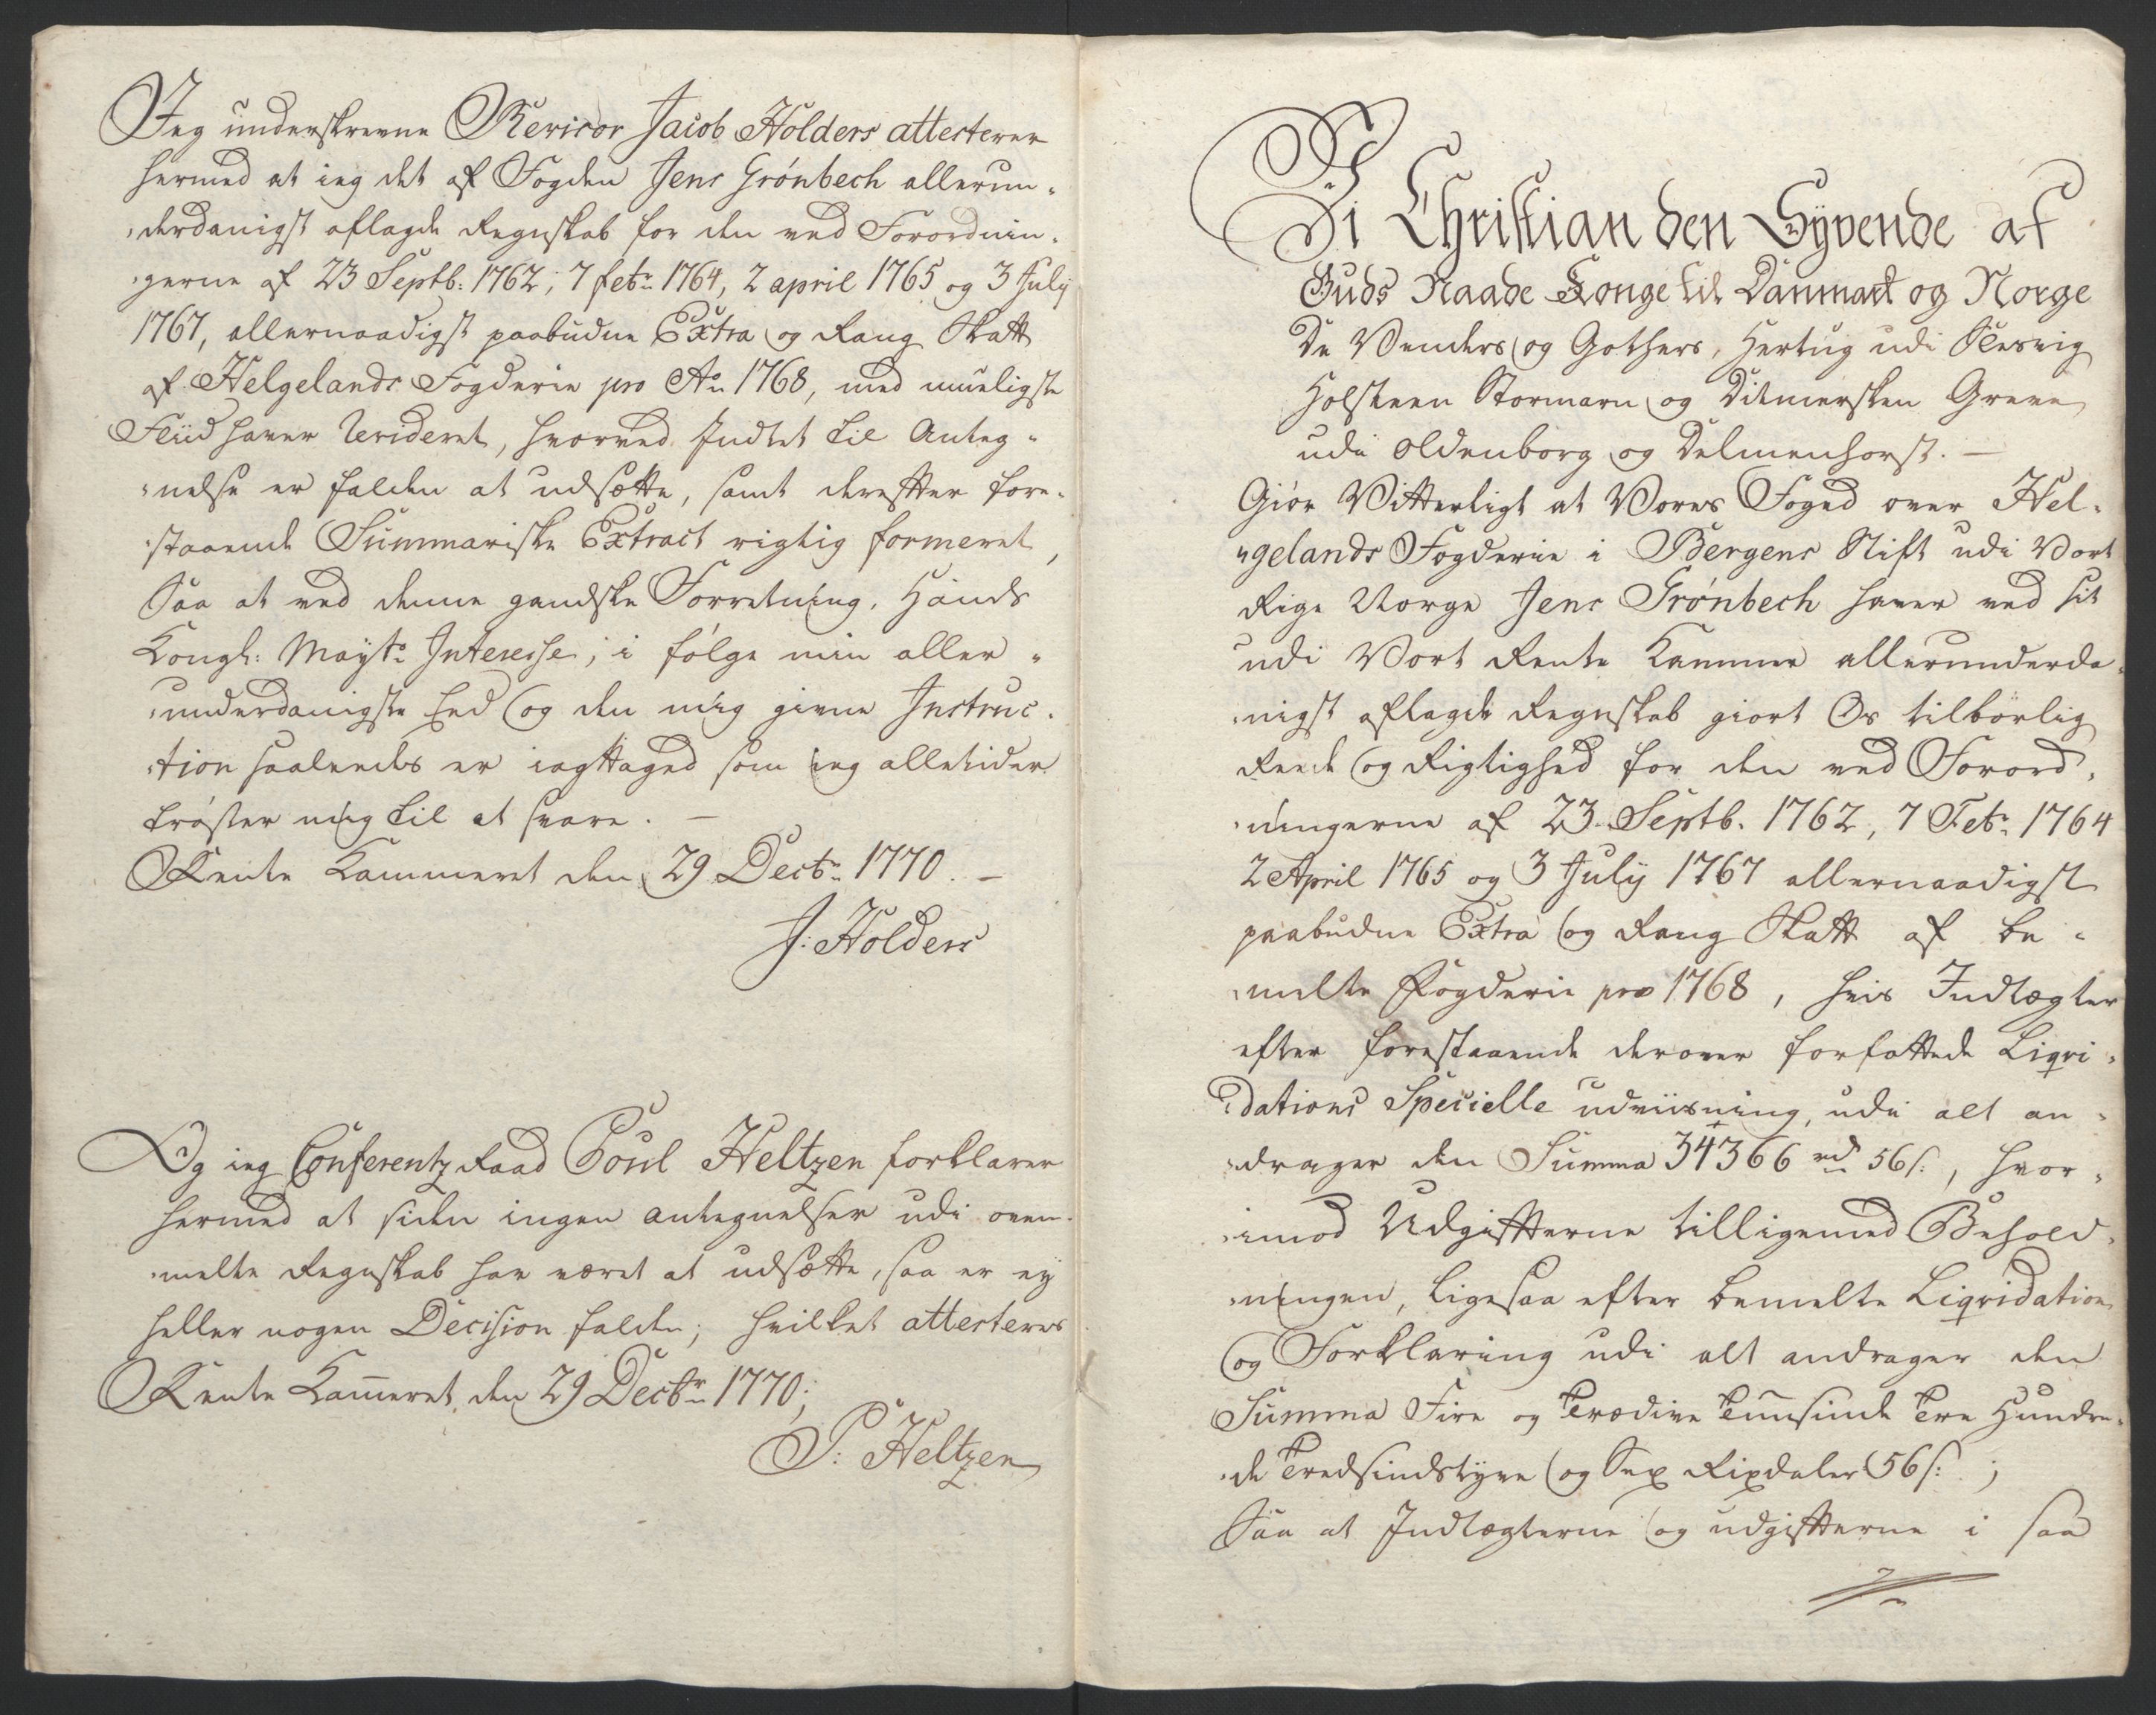 Jeg underskrevne Revisor Jacob Holders attesterer
hermed at ieg det af Fogden Jens Grønbech allerun-
-derdanigst aflagde Regnskab for den ved Forordnin-
-gerne af 23 Septb: 1762, 7 febr: 1764, 2 april 1765 og 3 July
1767, allernaadigst paabudne Extra og Rang Skatt
af Helgelands Fogderie pro Ao 1768, med mueligste
Fliid haver Revideret, hvorved Indtet til Anteg-
-nelse er falden at udsætte, samt derefter fore-
-staaende Summariske Extract rigtig formeret,
Saa at ved denne gandske Forretning, Hands
Kongl: Mayts Interesse, i følge min aller-
-underdanigste Eed og den mig givne Instruc-
-tion saaledes er iagttaged som ieg alletider
trøster mig til at svare. —
Rente Kammeret den 29 Decbr: 1770. —
J: Holders
Og ieg Conferentz Raad Poul Heltzen forklarer
hermed at siden ingen antegnelser udi oven-
-melte Regnskab har været at udsætte, saa er ey
heller nogen Decision falden; hvilket attesteres
Rente Kam̅eret den 29 Decbr: 1770;
P: Heltzen
Vi Christian den Syvende af
Guds Naade Konge til Danmark og Norge
De Venders og Gothers, Hertug udi Slesvig
Holsteen Stormarn og Ditmersken Greve
udi Oldenborg og Delmenhorst. —
Giør Vitterligt at Vores Foged over Hel-
-gelands Fogderie i Bergens Stift udi Vort
Rige Norge Jens Grønbech haver ved sit
udi Vort Rente Kammer allerunderda-
-nigst aflagde Regnskab giort Os tilbørlig
Reede og Rigtighed for den ved Forord-
-ningerne af 23 Septb. 1762, 7 Febr: 1764
2 April 1765 og 3 July 1767 allernaadigst
paabudne Extra og Rang Skatt af be-
-melte Fogderie pro 1768, hvis Indtægter
efter forestaaende derover forfattede Liqvi-
-dations Specielle udviisning, udi alt an-
-drager den Summa 34366 rd 56 s:, hvor-
-imod Udgifterne tilligemed Behold-
-ningen, ligesaa efter bemelte Liqvidation
og Forklaring udi alt andrager den
Summa Fire og Tredive Tuusinde Tre Hundre-
-de Tredsindstyve og Sex Rixdaler 56 s: ;
Saa at Indtægterne og udgifterne i saa